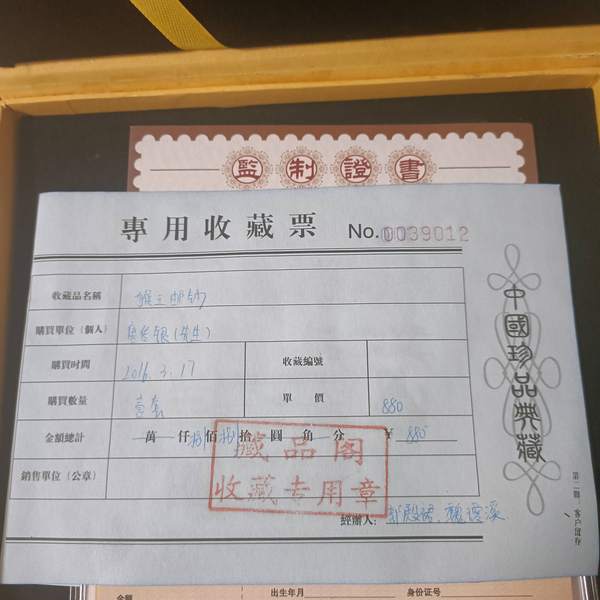 監制證書
專用收藏票 No.0039012
收藏品名稱 猴王邮钞
購買單位(個人) 银(先生)
購買时間 2016.3.17 收藏編號
購買數量 壹套 單價 880
金額總計 萬仟捌佰捌拾圓角分 ￥ 880
銷售單位(公章)
藏品阁
收藏专用章
經辦人:
中國珍品典藏
第二聯:客户留存
金額 出生年月 身份证号